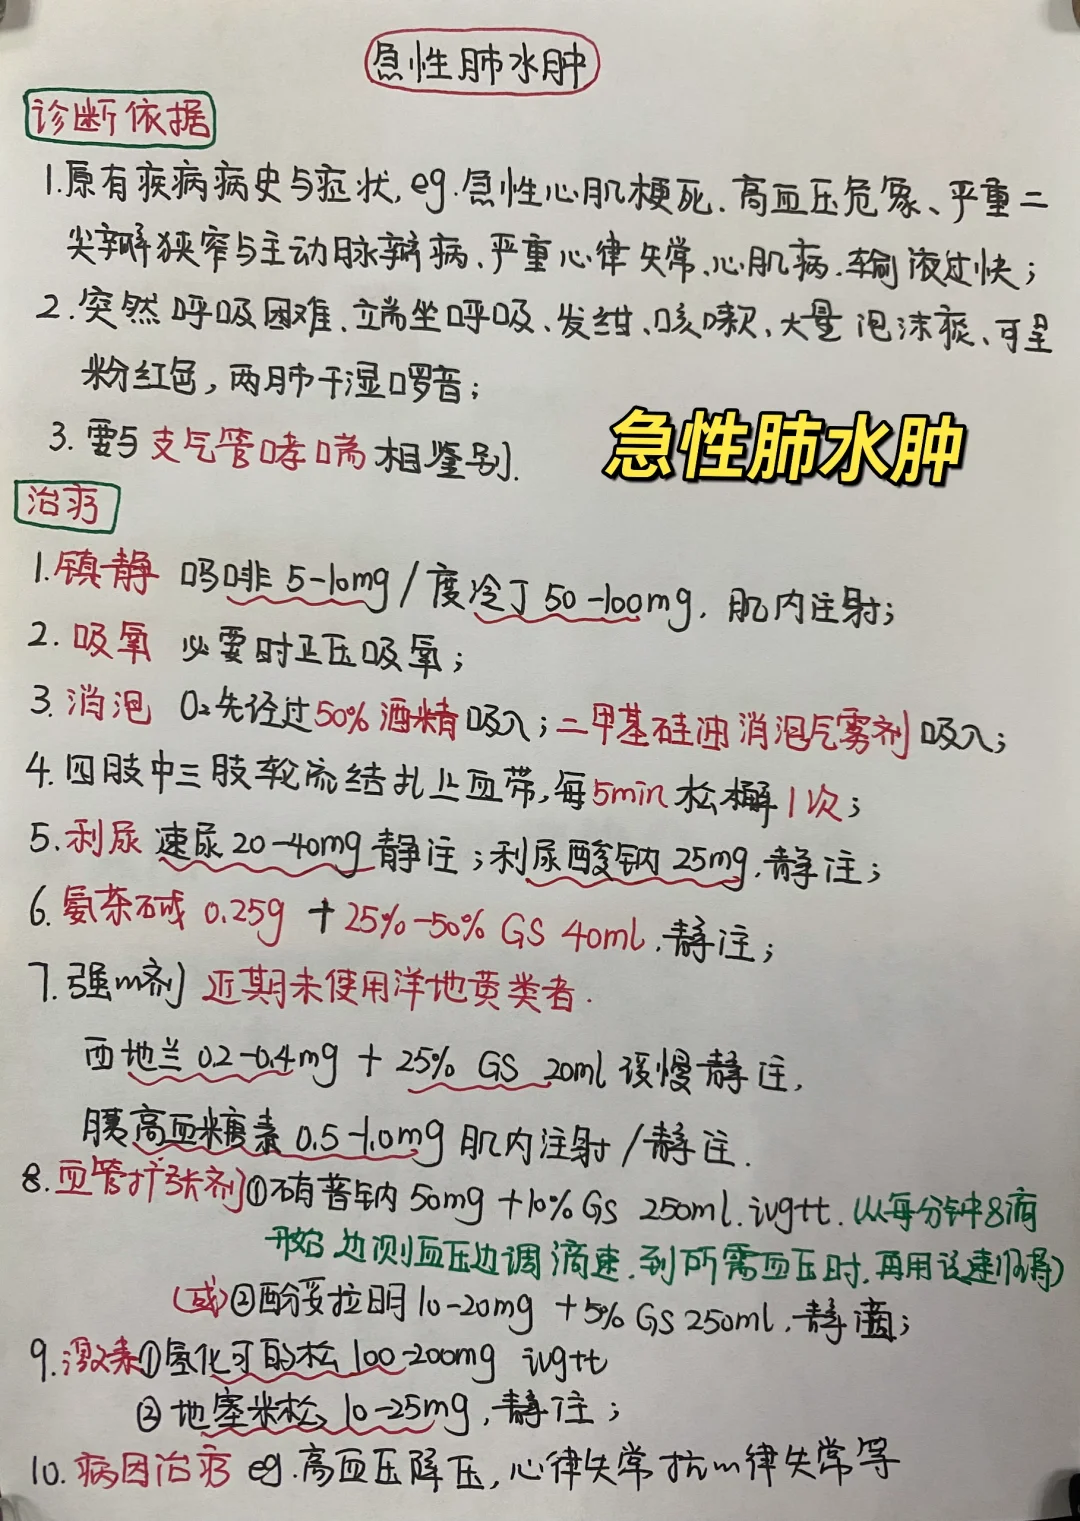 急性肺水肿
诊断依据
1.原有疾病病史与症状,eg.急性心肌梗死、高血压危象、严重二
尖瓣狭窄与主动脉瓣病、严重心律失常、心肌病、输液过快;
2.突然呼吸困难、端坐呼吸、发绀、咳嗽、大量泡沫痰、可呈
粉红色,两肺干湿啰音;
3.要与支气管哮喘相鉴别.
急性肺水肿
治疗
1.镇静 吗啡5-10mg/度冷丁50-100mg.肌内注射;
2.吸氧 必要时正压吸氧;
3.消泡 O₂先经过50%酒精吸入;二甲基硅油消泡气雾剂吸入;
4.四肢中三肢轮流结扎止血带,每5min松懈1次;
5.利尿 速尿20-40mg静注;利尿酸钠25mg.静注;
6.氨茶碱 0.25g + 25%-50% GS 40ml.静注;
7.强心剂 近期未使用洋地黄类者.
西地兰0.2-0.4mg + 25% GS 20ml缓慢静注,
胰高血糖素 0.5-1.0mg 肌内注射/静注.
8.血管扩张剂①硝普钠50mg+10%GS 250ml.ivgtt.(从每分钟8滴
开始 边测血压边调滴速.到所需血压时.再用该速维持)
(或)②酚妥拉明10-20mg +5%GS 250ml.静滴;
9.激素①氢化可的松100-200mg ivgtt
②地塞米松 10-25mg,静注;
10.病因治疗 eg.高血压降压,心律失常抗心律失常等